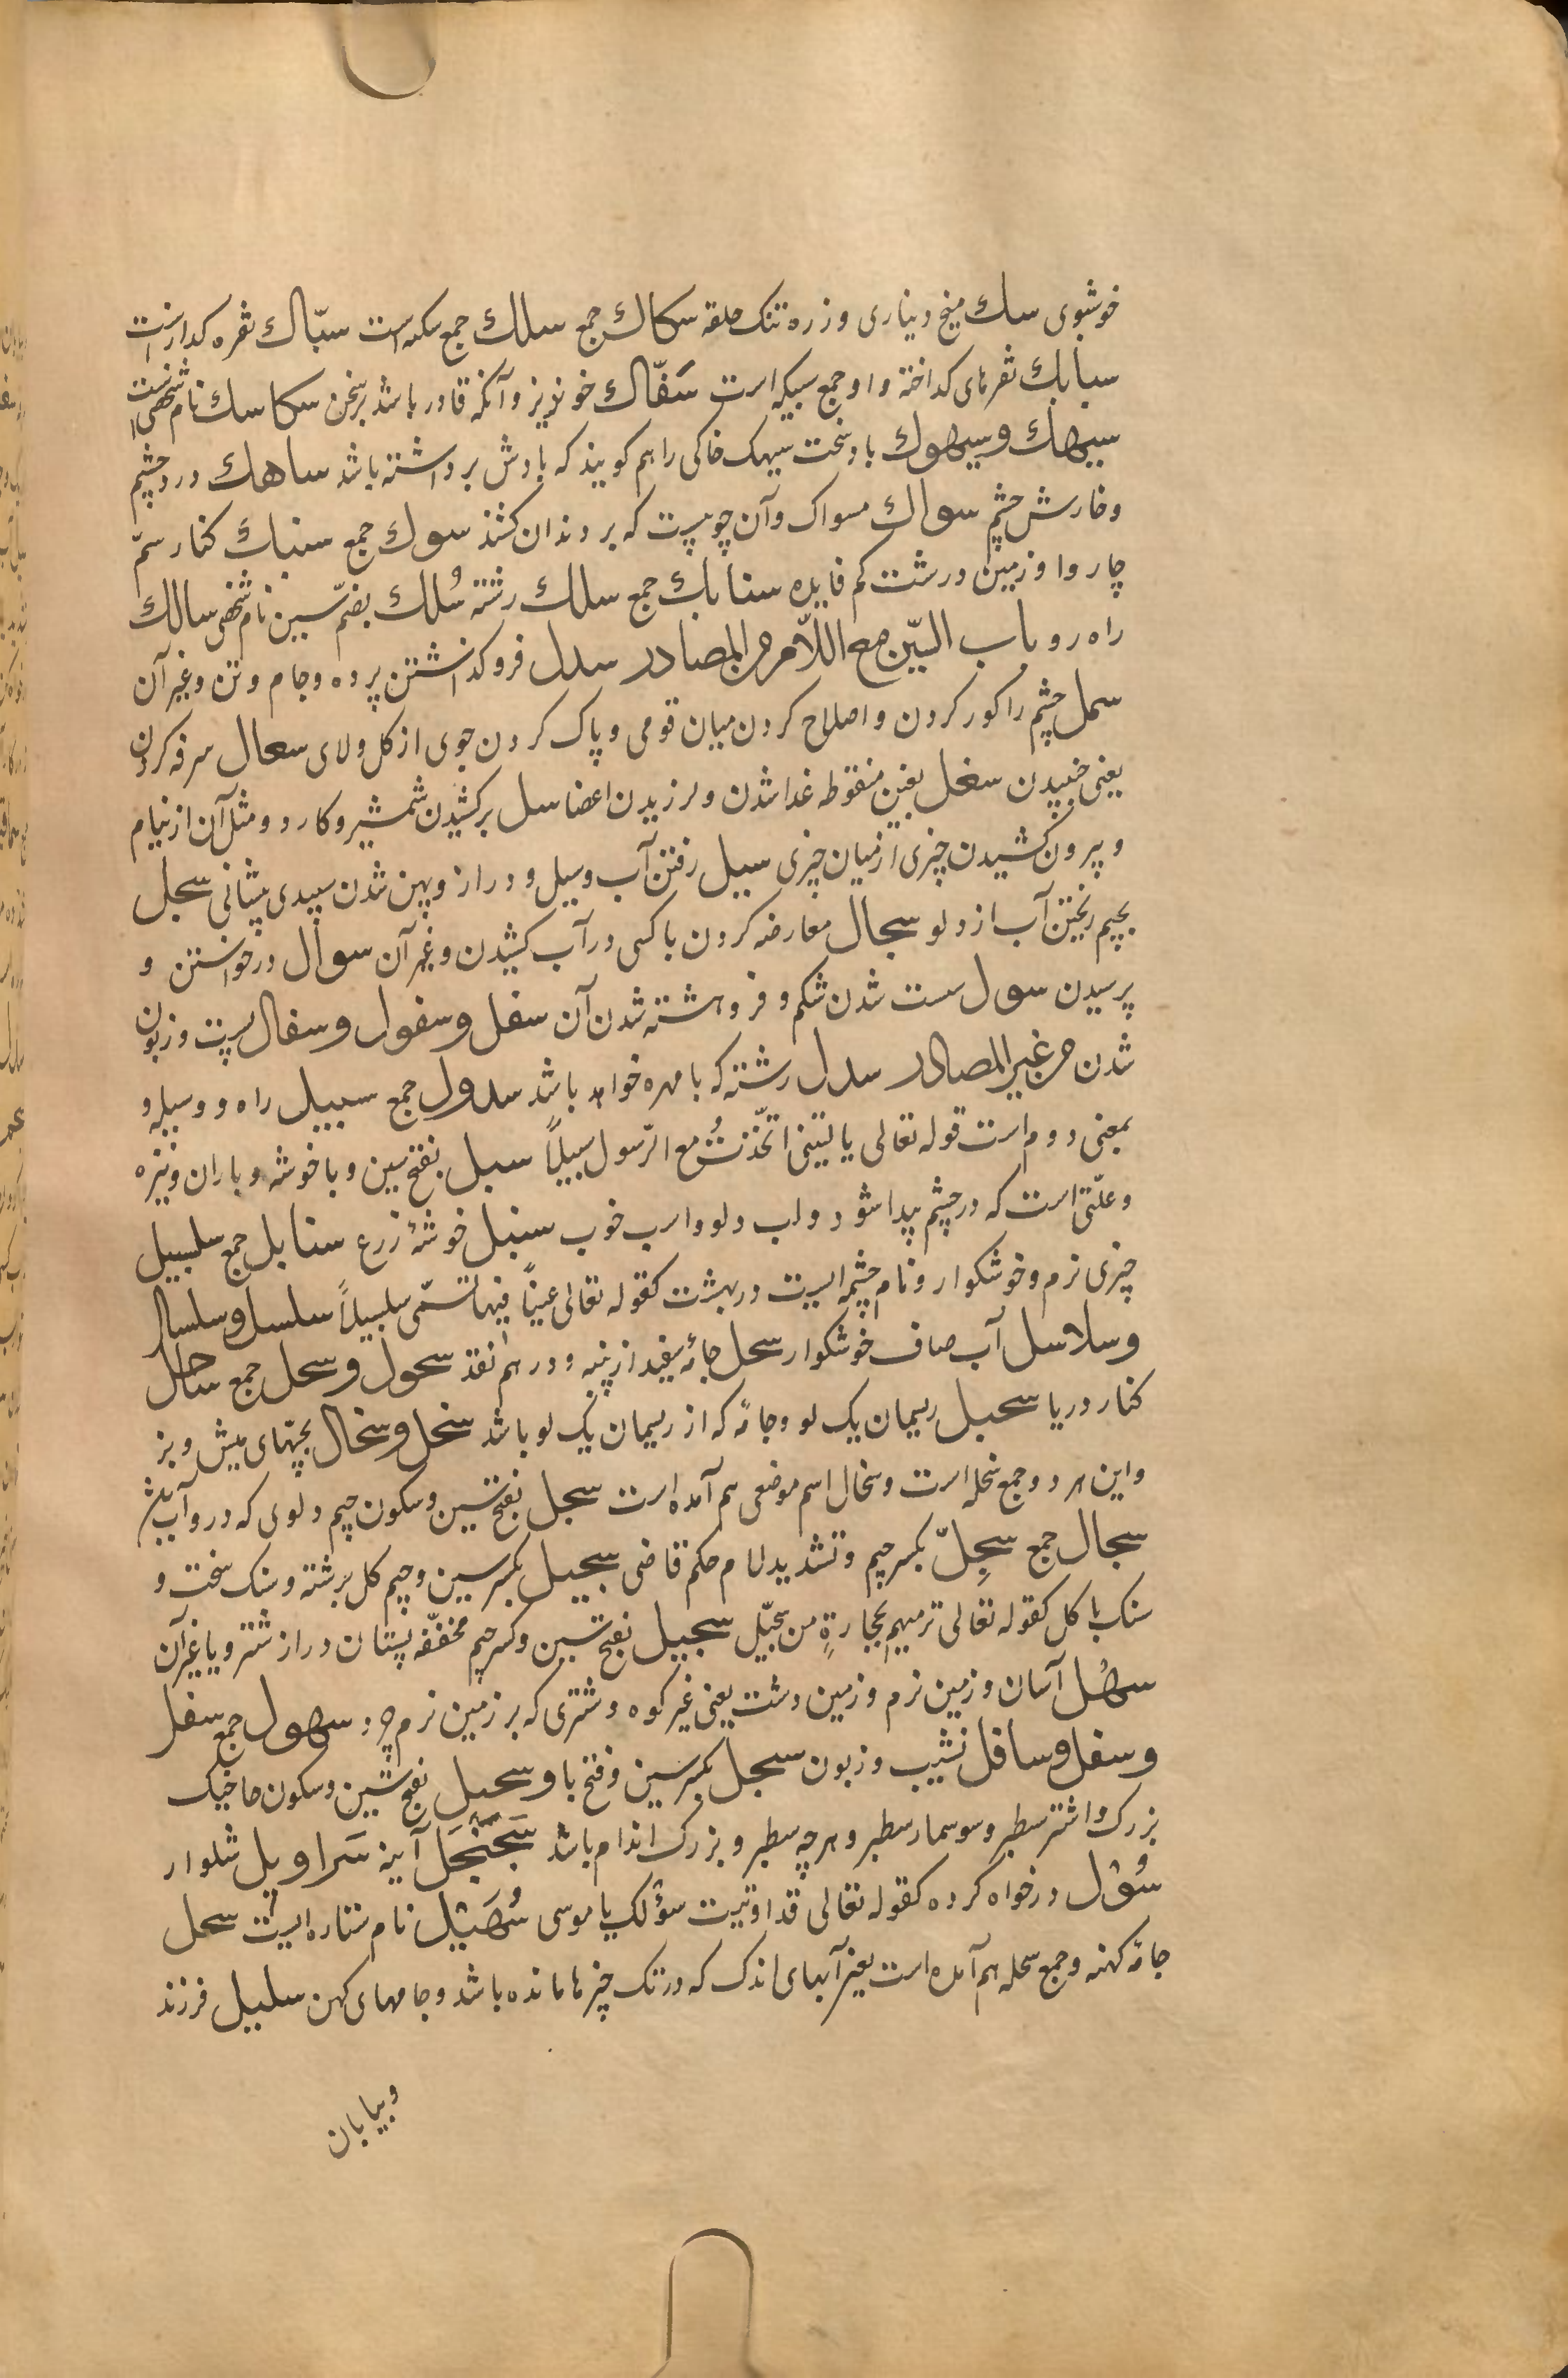 خوشبوی سك میخ دیناری وزره تنک حلقه سكاك جمع سلك جمع سکه است سبّاك نقره کدازنست
سبابك نقرهای کداخته واو جمع سبیکه است سَفّاك خونریز وآنکه قادر باشد برسخن سكاسك نام شخصی است
سیهك وسیهوك باد سخت سیهک خاکی راهم کویند که بادش برداشته باشد ساهك درد چشم
وخارش چشم سواك مسواک وآن چوبیست که بردندان کشند سوك جمع سنبك کنار سمّ
چاروا وزمین درشت کم فایده سنابك جمع سلك رشته سُلك بضمّ سین نام شخصی سالك
راه رو باب السّین مع اللّام من المصادر سدل فروکذاشتن پرده وجام وتن وغیر آن
سمل چشم را کور کردن واصلاح کردن میان قومی وپاک کردن جوی از کل ولای سعال سرفه کردن
یعنی خبیدن سغل بغین منقوطه غدا شدن ولرزیدن اعضا سل برکشیدن شمشیر وکارد ومثل آن از نیام
وپرون کشیدن چیزی از میان چیزی سیل رفتن آب وسیل ودراز وپهن شدن سپیدی پیشانی سجل
بجیم ریختن آب از دلو سجال معارضه کردن باکسی درآب کشیدن وغیر آن سوال درخواستن و
پرسیدن سول سست شدن شکم وفروهشته شدن آن سفل وسفول وسفال پست وزبون
شدن من غیر المصادر سدل رشته که بامهره خواهد باشد سدول جمع سبیل راه ووسیله و
بمعنی دوم است قوله تعالی یا لیتنی اتّخذتُ مع الرّسول سبیلاً سبل بفتح سین وبا خوشه وباران ونیزه
وعلّتی است که درچشم پیدا شود ولب دلو واسب خوب سنبل خوشهٔ زرع سنابل جمع سلسبیل
چیزی نرم وخوشکوار ونام چشمه ایست دربهشت کقوله تعالی عیناً فیها تسمّی سلسبیلاً سلسل وسلسال
وسلاسل آب صاف خوشکوار سحل جامهٔ سفید از پنبه ودرهم نقد سحول وسحل جمع ساحل
کنار دریا سحیل ریسمان یک لو وجامهٔ که از ریسمان یک لو باشد سخل وسخال بچّهای میش وبز
واین هردو جمع سخله است وسخال اسم موضعی هم آمده است سجل بفتح سین وسکون جیم دلوی که درو آب باشد
سجال جمع سِجِلّ بکسر جیم وتشدید لام حکم قاضی سجیل بکسر سین وجیم کل برشته وسنک سخت و
سنک با کل کقوله تعالی ترمیهم بحجارةٍ من سجّیل سجیل بفتح سین وکسر جیم مخففّه پستان دراز شتر ویا غیر آن
سهْل آسان وزمین نرم وزمین دشت یعنی غیر کوه وشتری که بر زمین نرم چرد سهول جمع سفل
وسفل وسافل نشیب وزبون سبحل بکسر سین وفتح با وسحبل بفتح سین وسکون حا خیک
بزرک واشتر سطبر وسوسمار سطبر وهرچه سطبر وبزرک اندام باشد سَجَنْجَل آینه سَراویل شلوار
سُؤل درخواه کرده کقوله تعالی قد اوتیت سؤلک یا موسی سُهَیْل نام ستاره ایست سمل
جامهٔ کهنه وجمع سمله هم آمده است یعنی آبهای اندک که درتک چیزها مانده باشد وجامهای کهن سلیل فرزند
وبیابان